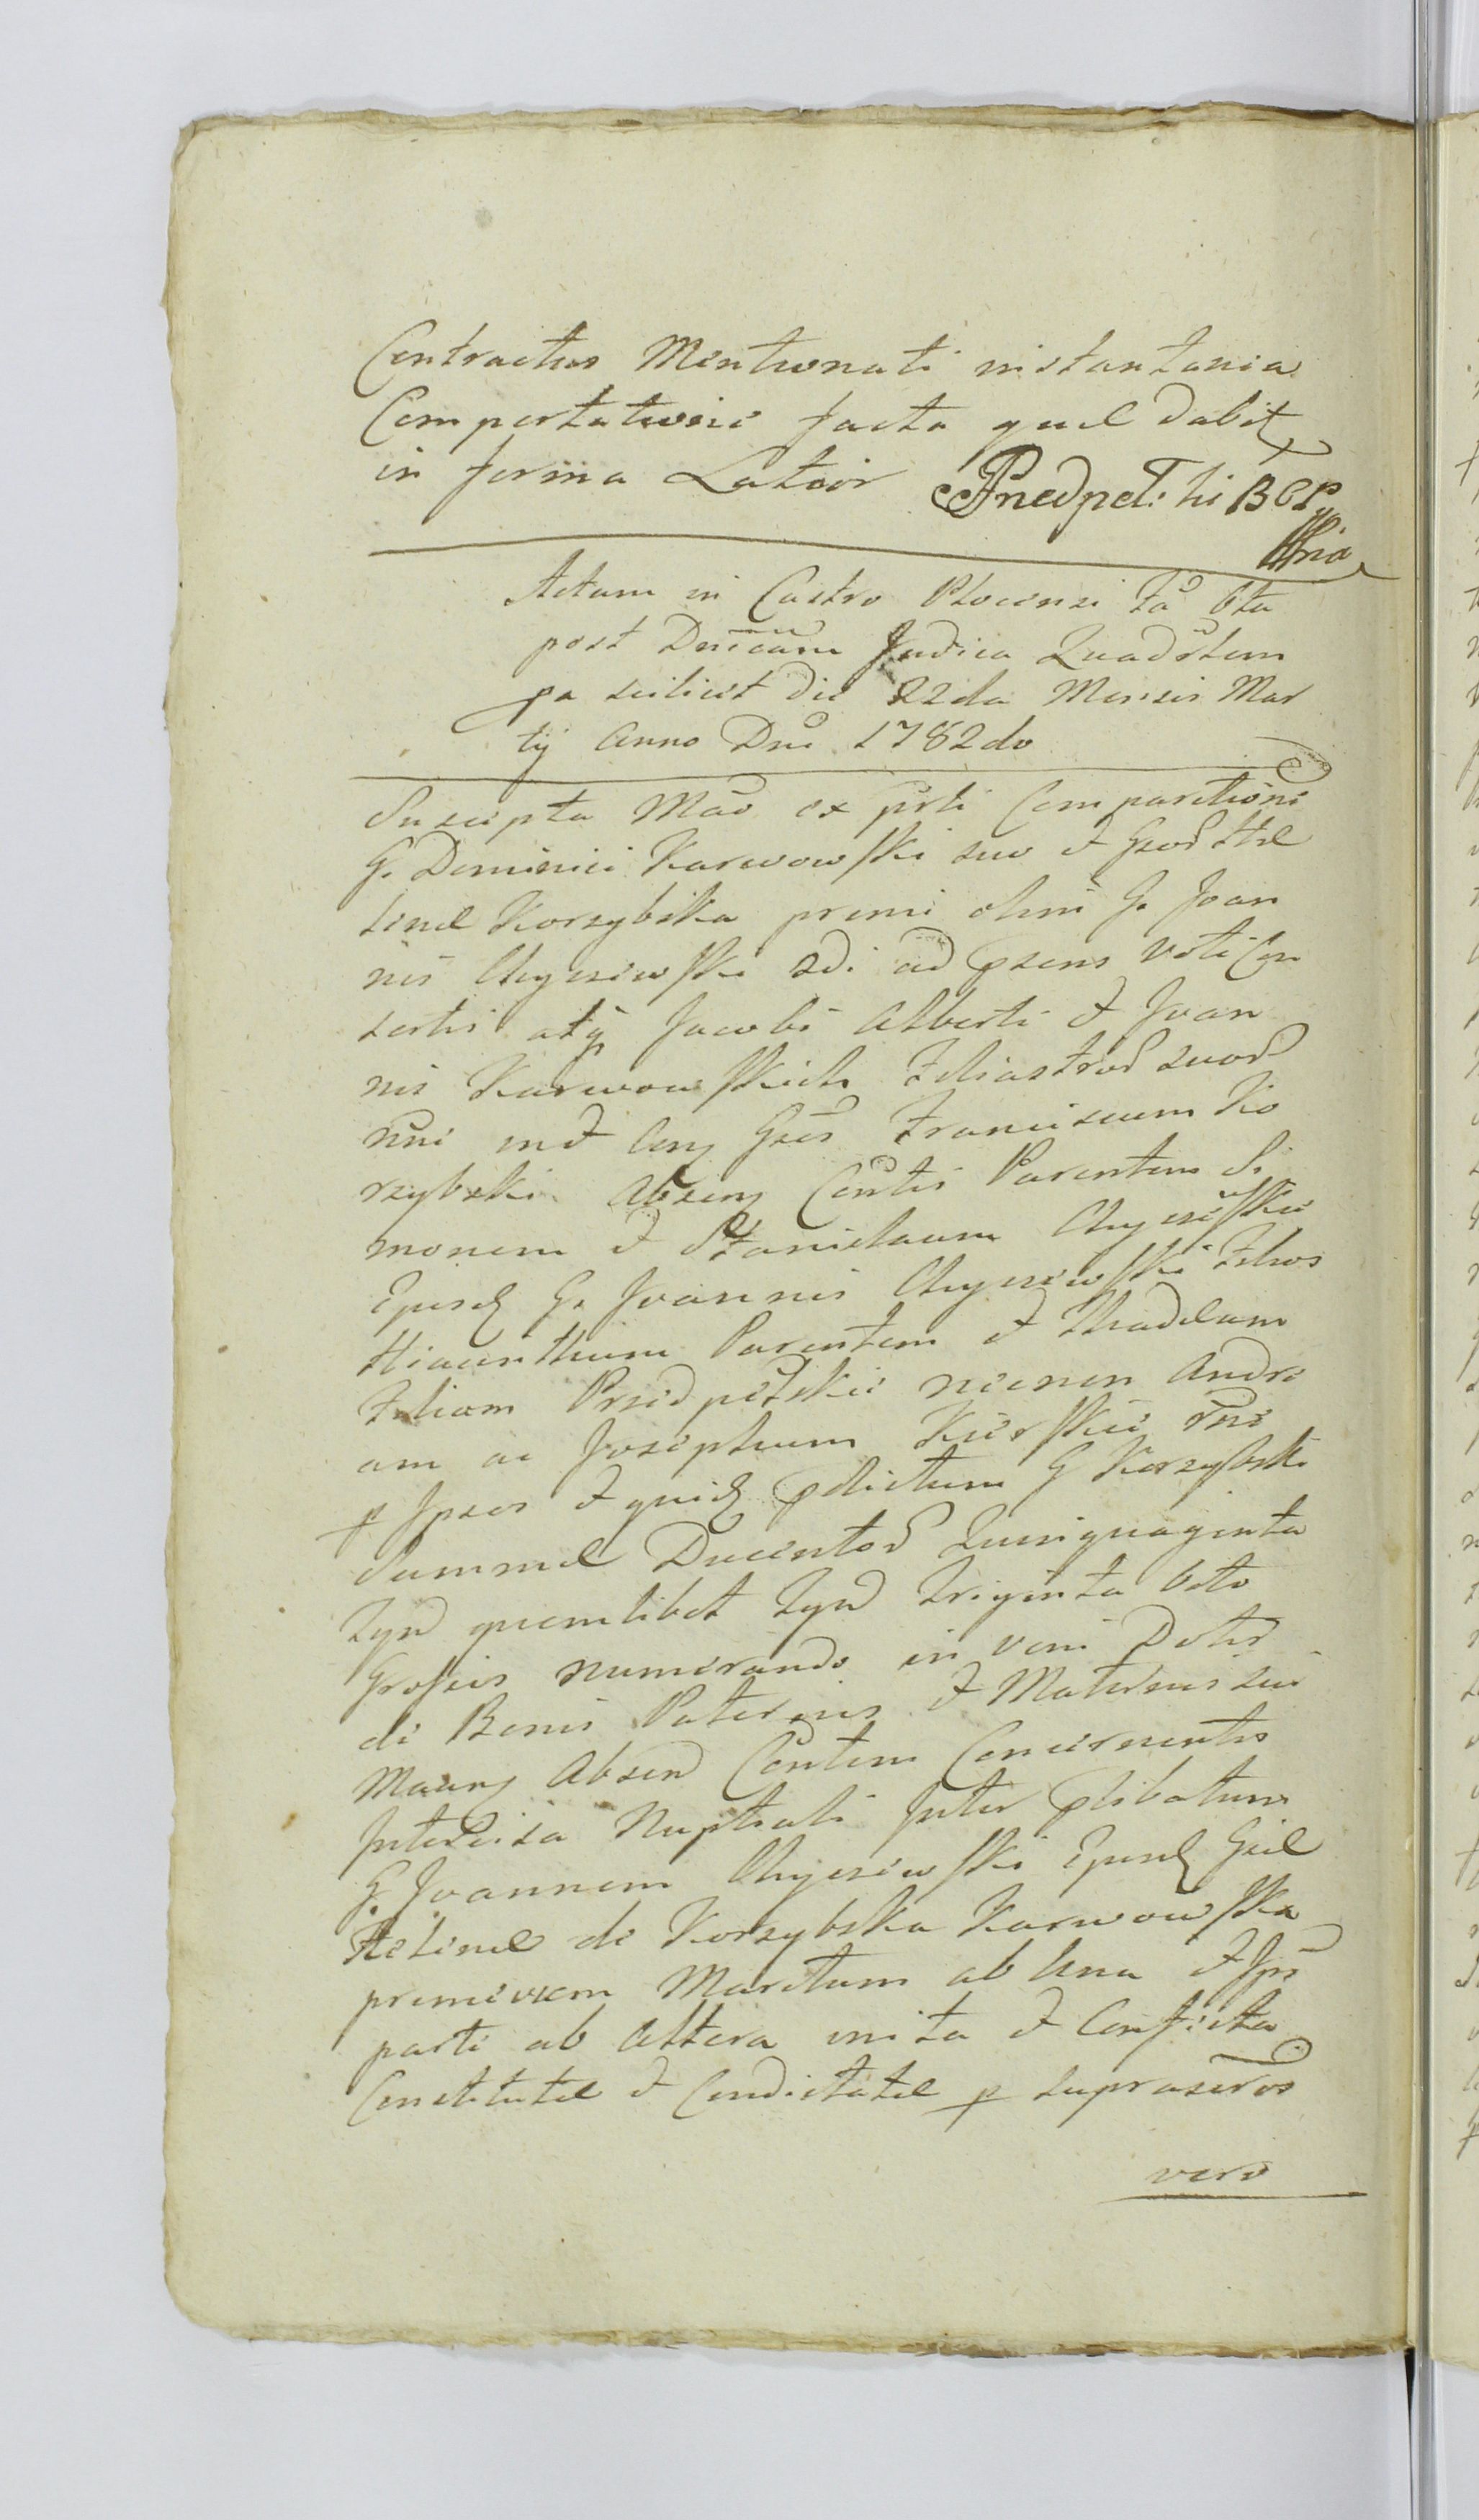 Contractus Mentionati instantanea
Comportatione facta quæ dabit
in forma Latior
Actum in Castro Plocensi fã 6ta
post Dnicam Judica Quadrtam
pa scilicet die 22da Mensis Mar
tij Anno Dni 1782do
Suscepta Mão ex prti Comparitione
G. Dominici Karwowski suo et
tinæ Korzybska primi olim G. Joan
nis Chyczewski 2di ad psens voti Con
sortis atq Jacobi Alberti et Joan
nis Karwowskich Filiastror suor
nni Franciscum Ko
rzybski Absen Contis Parentem Si
monem et Stanislaum
Ejusd G. Joannis Chyczewski Filios
Hiacinthum Parentem et Thadeum
Filium Przedpełskie necnon Andre
am ac Josephum
p Ipsos et quid pdictum G Korzybski
Summæ Ducentor Quinquaginta
quemlibet Triginta octo
Grossis numerando in vim Dotis
de Bonis Paternis et Maternis sui
Absen Contem Concernentis
Intercisa Nuptiali Inter plibatum
G. Joannem Chyczewski Ejusd Gæ
de Korzybska Karwowska
primievem Maritum ab una et Ips
parte ab Altera inita et Conficta
Constitutæ et Condictatæ p suprascros
vero